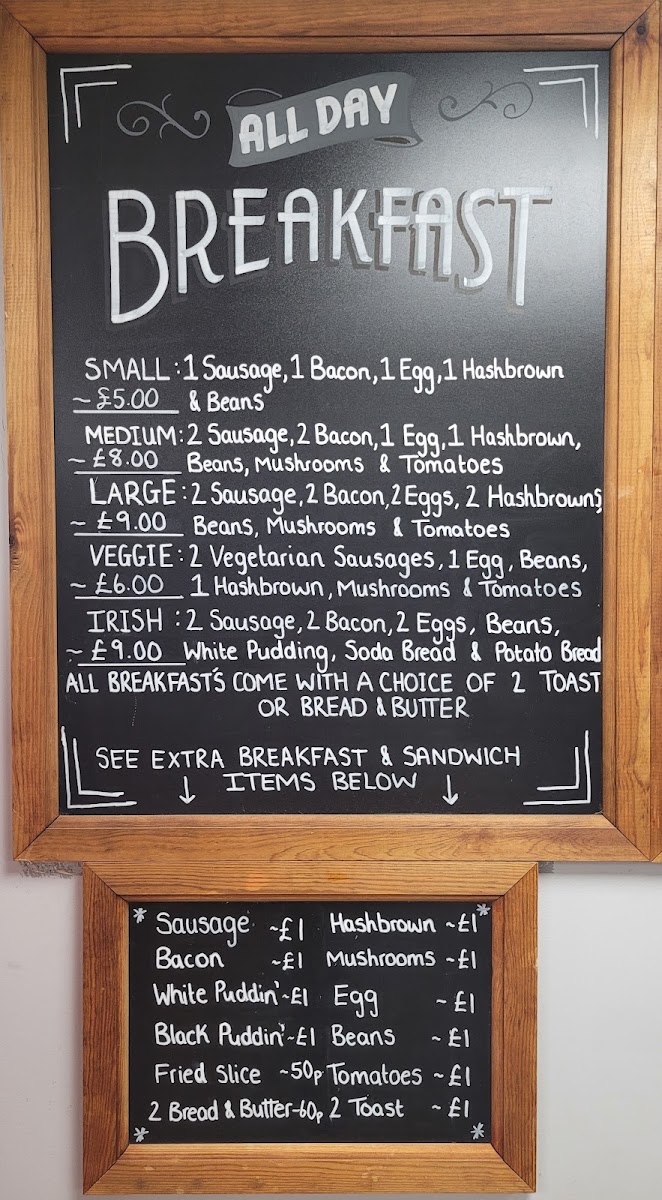 ALL DAY
BREAKFAST
SMALL : 1 Sausage, 1 Bacon, 1 Egg, 1 Hashbrown
~ £5.00 & Beans
MEDIUM: 2 Sausage, 2 Bacon, 1 Egg, 1 Hashbrown,
~ £8.00 Beans, Mushrooms & Tomatoes
LARGE : 2 Sausage, 2 Bacon, 2 Eggs, 2 Hashbrowns,
~ £9.00 Beans, Mushrooms & Tomatoes
VEGGIE : 2 Vegetarian Sausages, 1 Egg, Beans,
~ £6.00 1 Hashbrown, Mushrooms & Tomatoes
IRISH : 2 Sausage, 2 Bacon, 2 Eggs, Beans,
~ £9.00 White Pudding, Soda Bread & Potato Bread
ALL BREAKFAST'S COME WITH A CHOICE OF 2 TOAST
OR BREAD & BUTTER
SEE EXTRA BREAKFAST & SANDWICH
↓ ITEMS BELOW ↓
* Sausage ~£1 Hashbrown ~£1 *
Bacon ~£1 Mushrooms ~£1
White Puddin' ~£1 Egg ~£1
Black Puddin' ~£1 Beans ~£1
Fried Slice ~50p Tomatoes ~£1
* 2 Bread & Butter ~60p 2 Toast ~£1 *